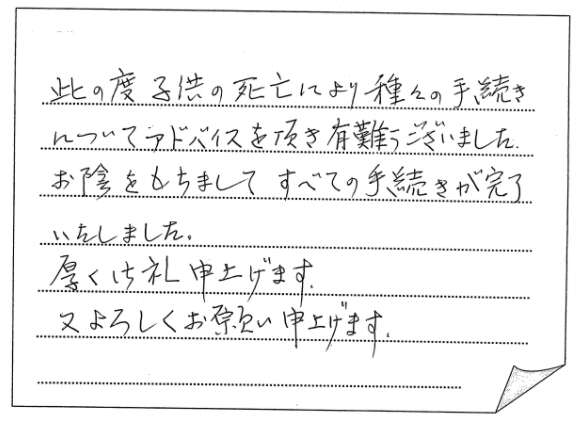 此の度子供の死亡により種々の手続き
についてアドバイスを頂き有難うございました.
お陰をもちまして すべての手続きが完了
いたしました.
厚く御礼申上げます.
又よろしくお願い申上げます.